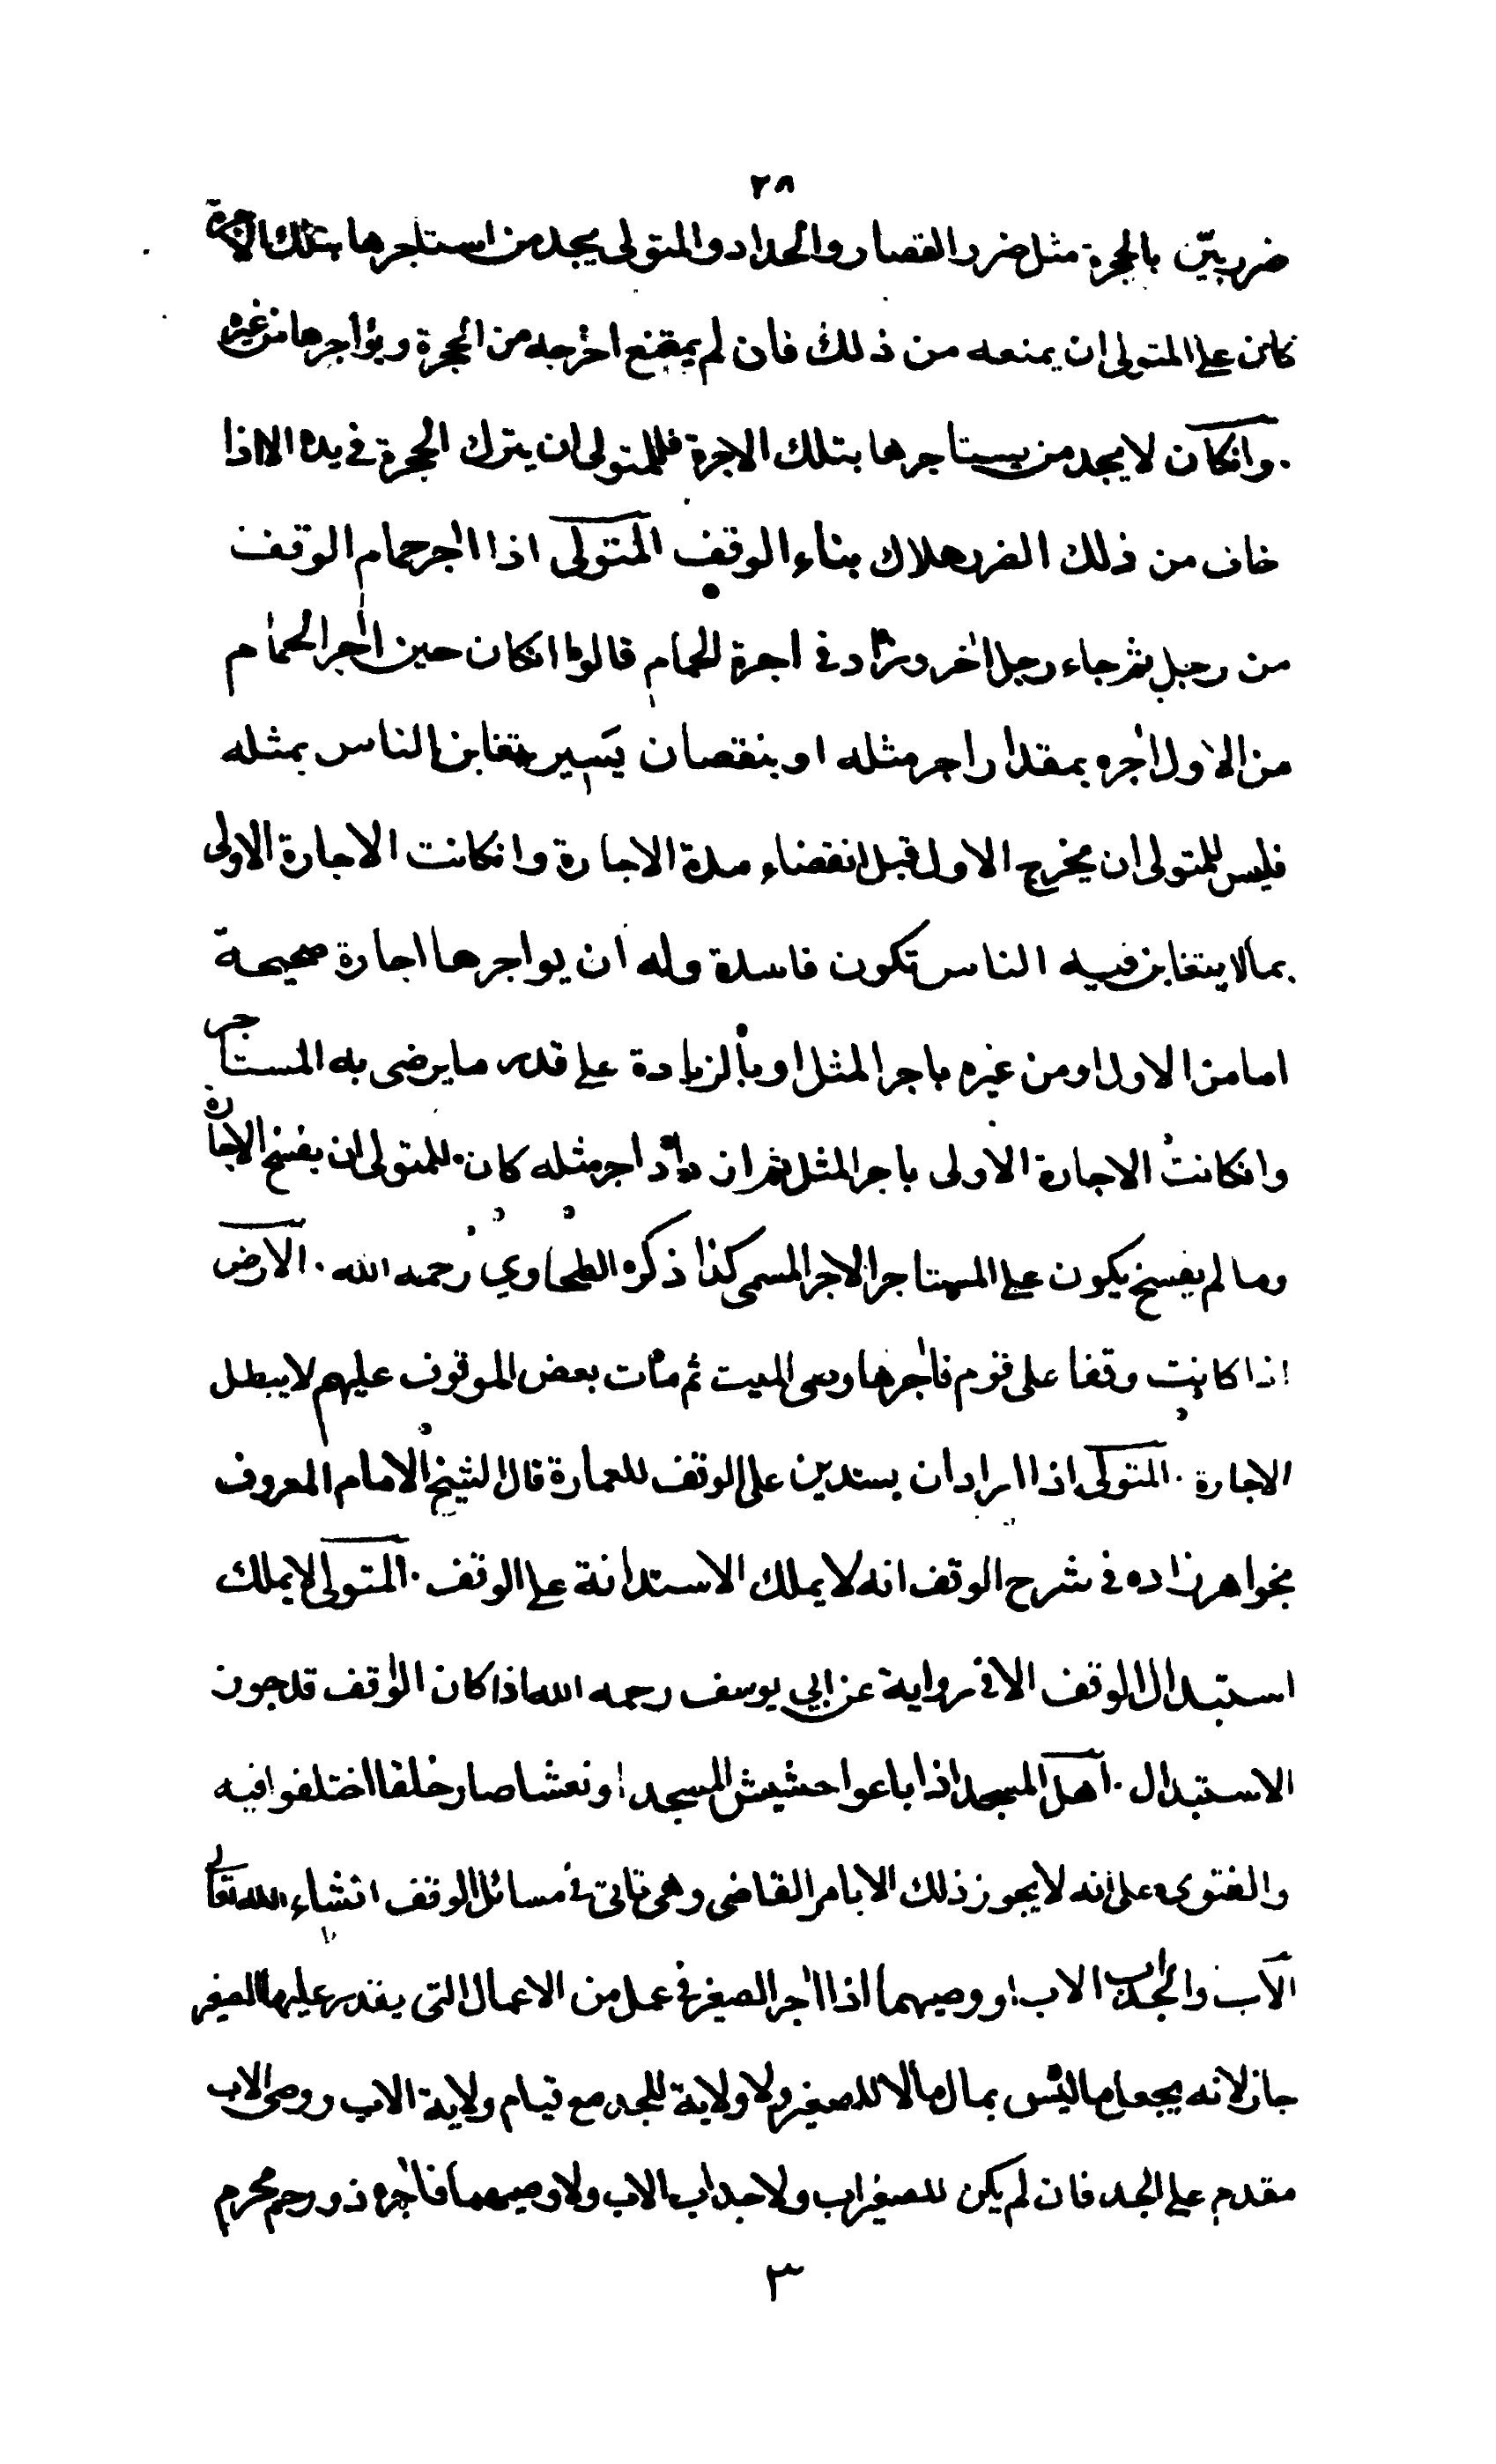 ٢٨
ضرر بيّن بالحجرة مثل ضرر القصار والحداد والمتولى يجد من استاجرها بتلك الاجرة
كان على المتولى ان يمنعه من ذلك فان لم يمتنع اخرجه من الحجرة ويؤاجرها من غيره
وانكان لا يجد من يستاجرها بتلك الاجرة فللمتولى ان يترك الحجرة فى يده الا اذا
خاف من ذلك الضرر هلاك بناء الوقف المتولى اذا اٰجر حمام الوقف
من رجل ثم جاء رجل اٰخر وزاد فى اجرة الحمام قالوا انكان حين اٰجر الحمام
من الاول اٰجره بمقدار اجر مثله او بنقصان يَسِير يتغابن الناس بمثله
فليس للمتولى ان يخرج الاول قبل انقضاء مدة الاجارة وانكانت الاجارة الاولى
بما لا يتغابن فيه الناس تكون فاسدة وله ان يواجرها اجارة صحيحة
اما من الاول او من غيره باجر المثل او بالزيادة على قدر ما يرضى به المستاجر
وانكانت الاجارة الاولى باجر المثل ثم ان داد اجر مثله كان للمتولى ان يفسخ الاجارة
وما لم يفسخ يكون على المستاجر الاجر المسمى كذا ذكره الطحاوي رحمه الله . الارض
اذا كانت وقفا على قوم فاٰجرها وصى الميت ثم مات بعض الموقوف عليهم لا يبطل
الاجارة . المتولى اذا اراد ان يستدين على الوقف للعمارة قال الشيخ الامام المعروف
بخواهر زاده فى شرح الوقف انه لا يملك الاستدانة على الوقف . المتولى لا يملك
استبدال الوقف الا فى رواية عن ابي يوسف رحمه الله اذا كان الواقف قد جوز
الاستبدال . اهل المسجد اذا باعوا حشيش المسجد او نعشا صار خلقا اختلفوا فيه
والفتوى على انه لا يجوز ذلك الا بامر القاضى وهى تاتى فى مسائل الوقف انشاء الله تعالى
الاب والجد اب الاب او وصيهما اذا اٰجر الصغير فى عمل من الاعمال التى يقدر عليها الصغير
جاز لانه يجعل ما ليس بمال مالا للصغير ولا ولاية للجد مع قيام ولاية الاب ووصى الاب
مقدم على الجد فان لم يكن للصغير اب ولا جد اب الاب ولا وصيهما فاٰجره ذو رحم محرم
٣